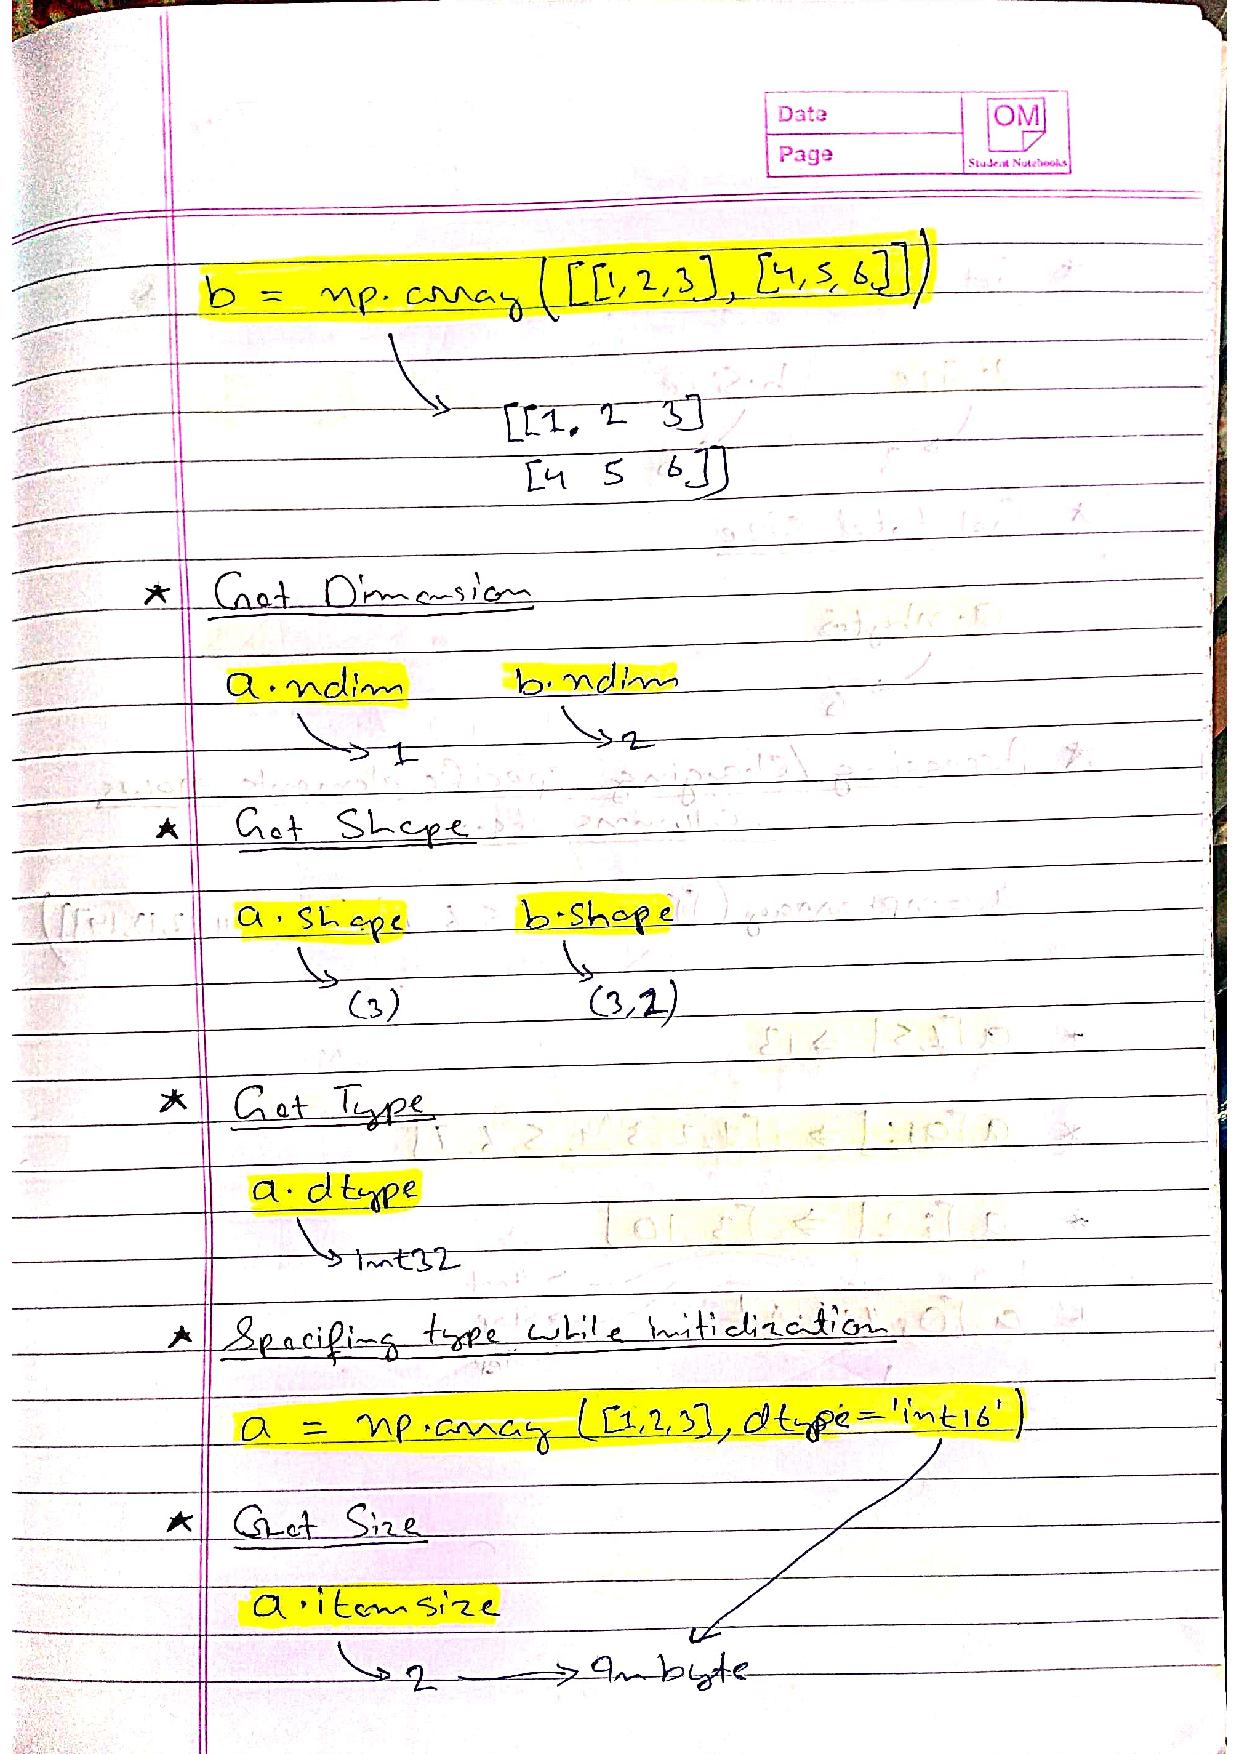 Date
OM
Page
Student Notebooks
b = np.array([[1,2,3], [4,5,6]])
[[1, 2 3]
[4 5 6]]
* Get Dimension
a.ndim b.ndim
1 2
* Get Shape
a.shape b.shape
(3) (3,2)
* Get Type
a.dtype
int32
* Specifing type while initidization
a = np.array ([1,2,3], dtype='int16')
* Get Size
a.itemsize
2 → In byte